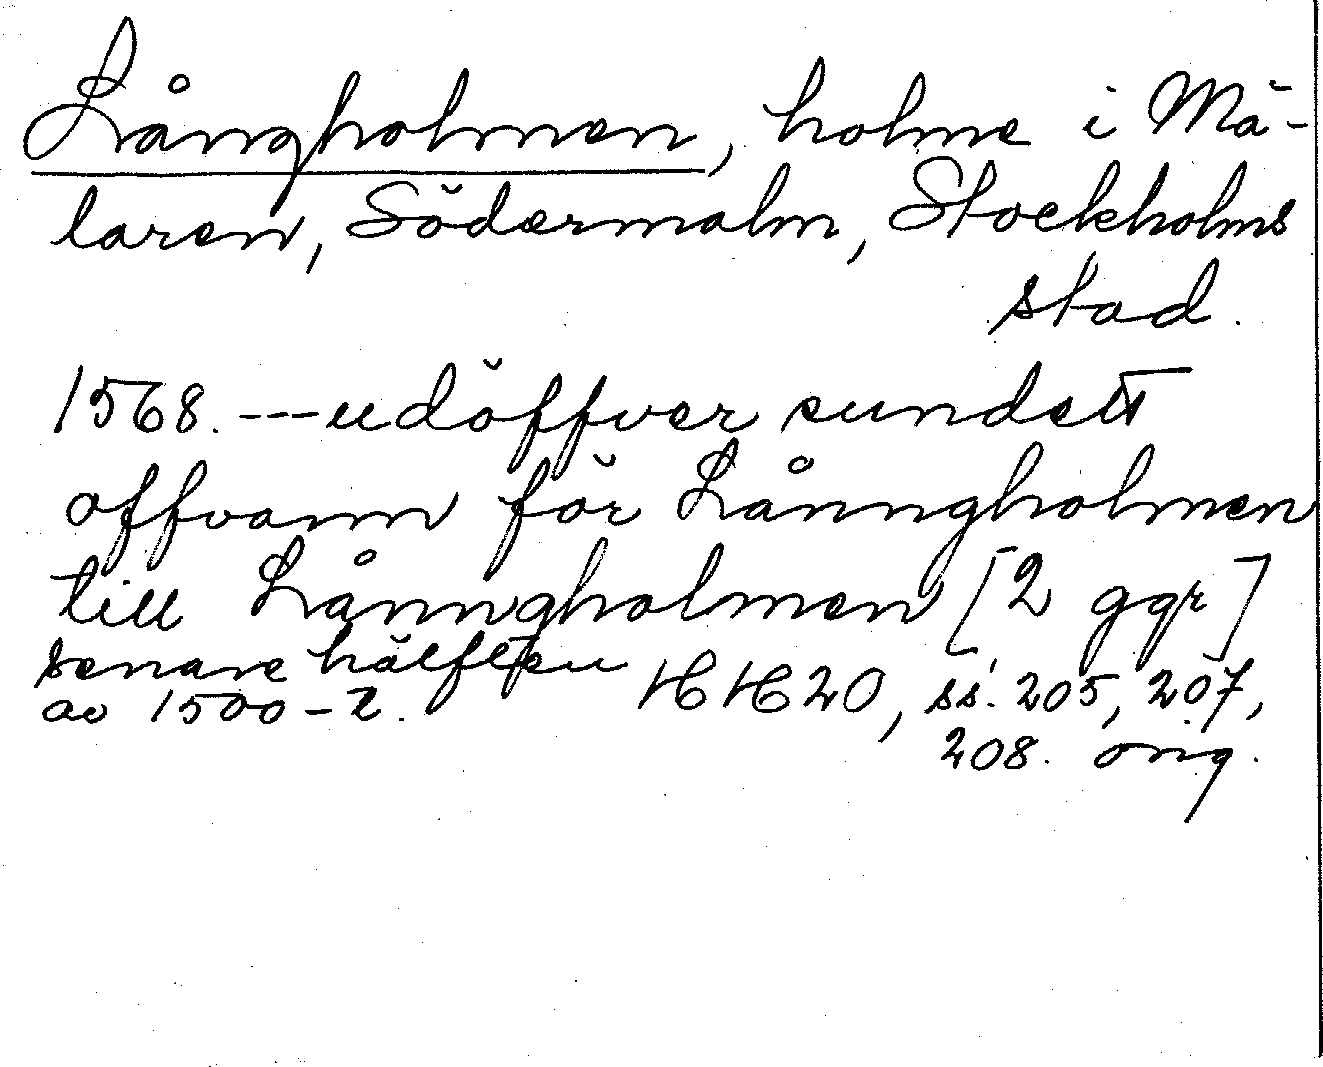 Långholmen, holme i Mä-
laren, Södermalm, Stockholms
stad.
1568. ---udöffver sundett
offvann för Lånngholmen
till Lånngholmen [2 ggr]
senare hälften
av 1500-t. HH20, ss. 205, 207,
208. orig.